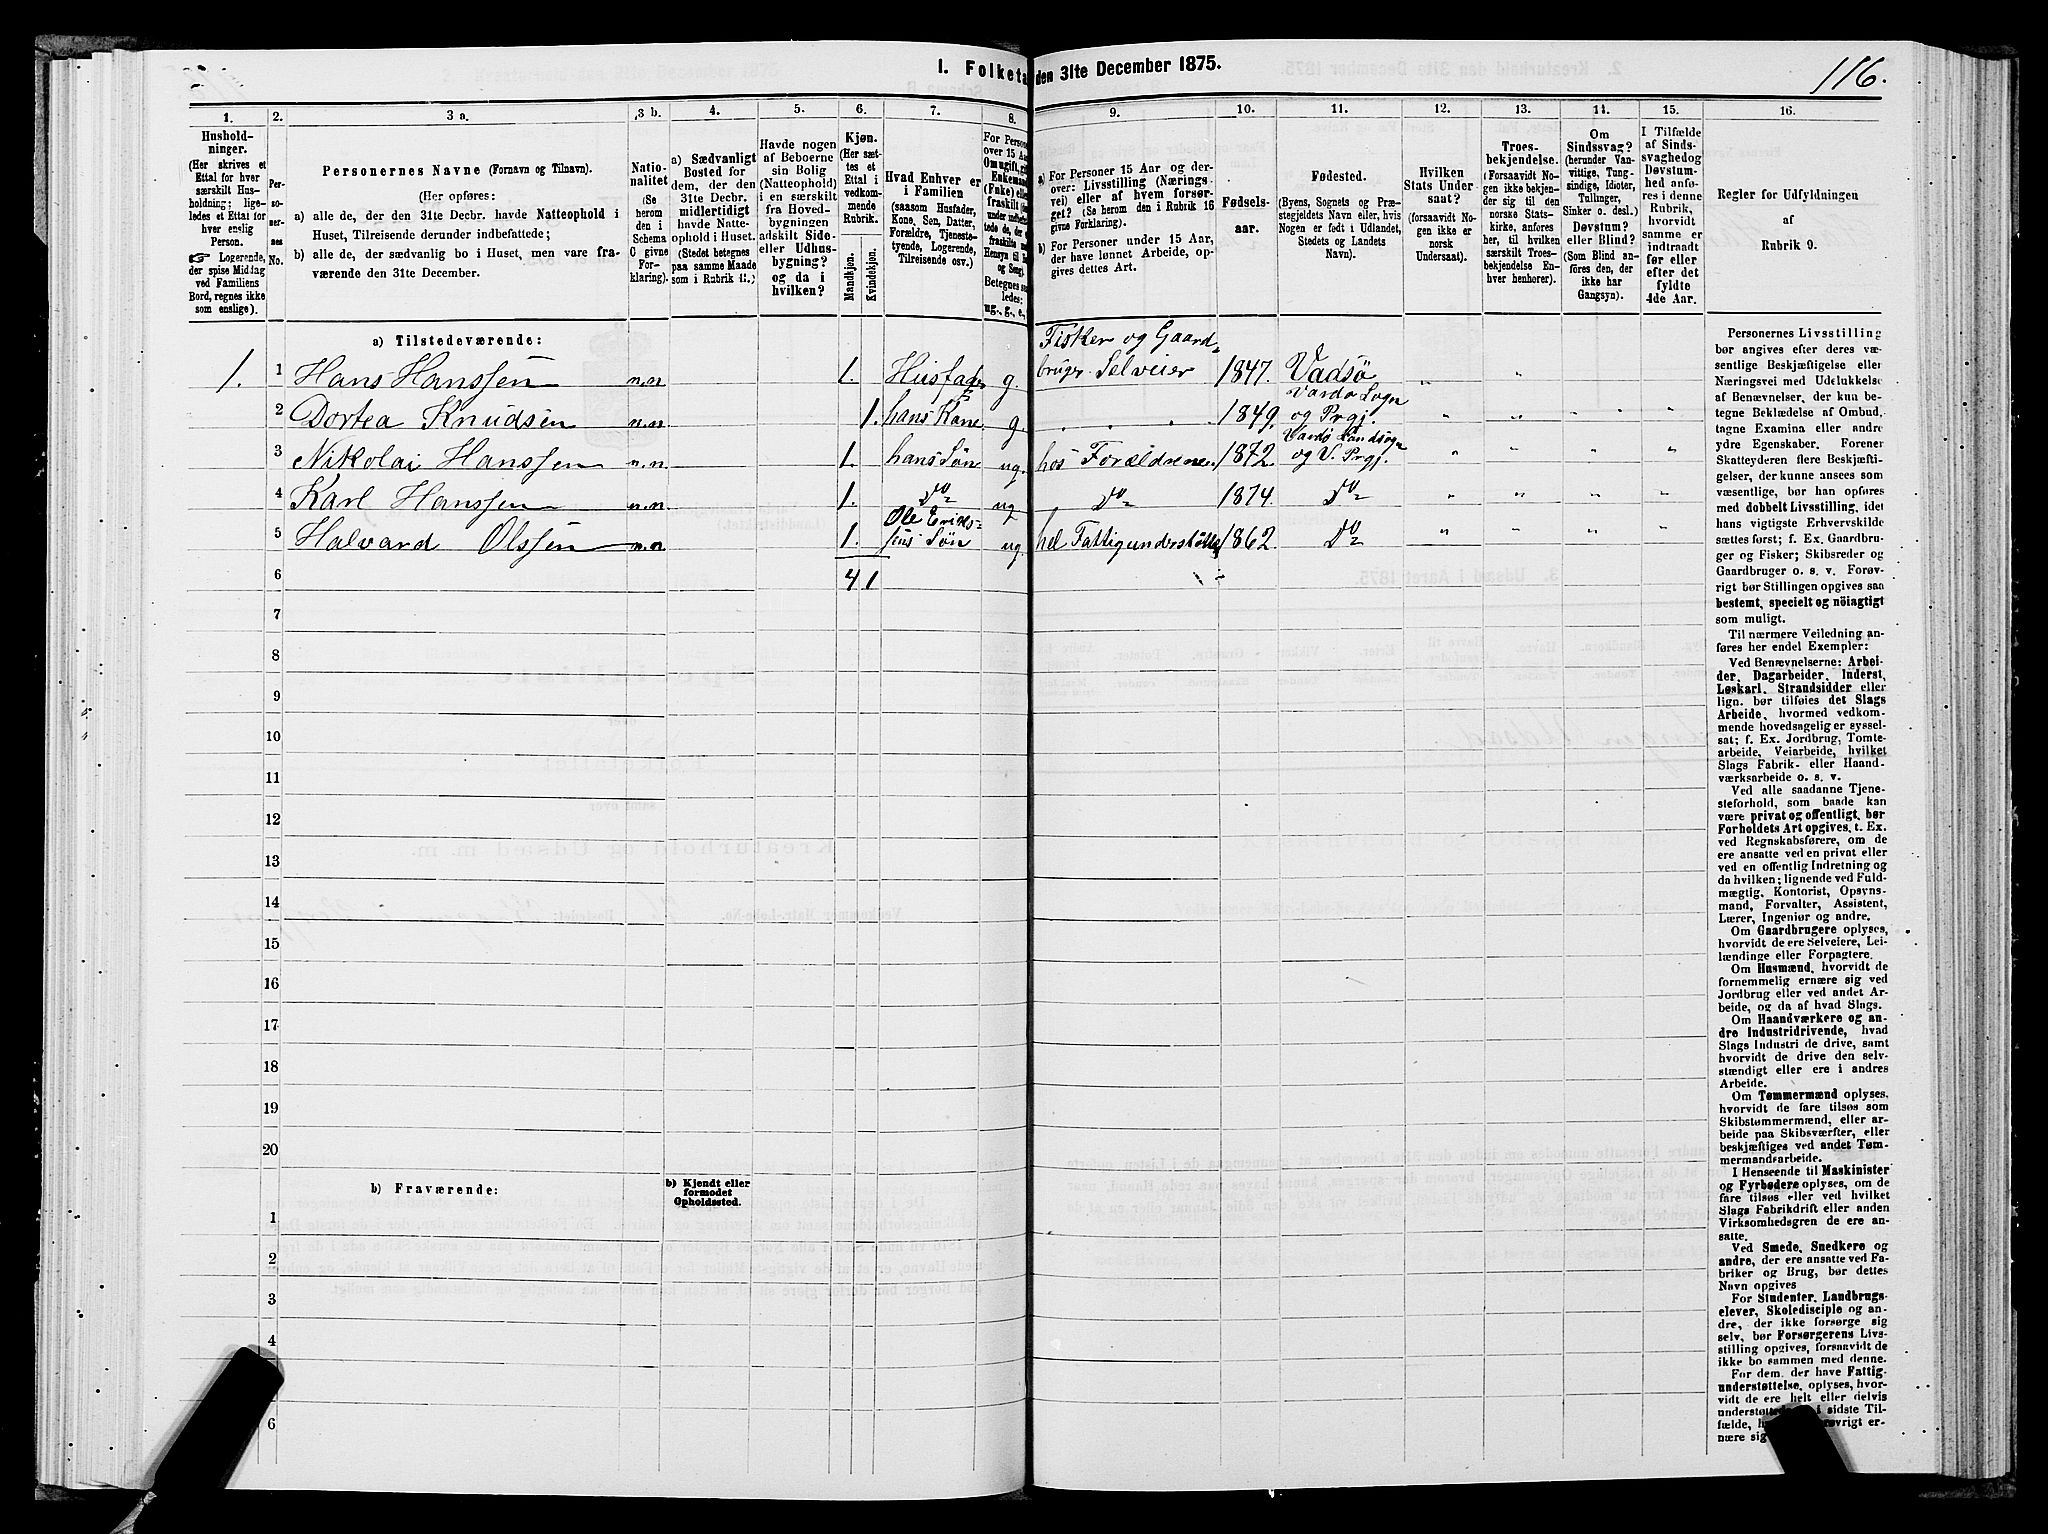 116.
I. Folketa
den 31te December 1875.
1.
2.
3 a.
3 b.
4.
5.
6.
7.
8.
9.
10.
11.
12.
13.
14.
15.
16.
Hushold-
ninger.
(Her skrives et
Ettal for hver
særskilt Hus-
holdning; lige-
ledes et Ettal for
hver enslig
Person.
☞ Logerende,
der spise Middag
ved Familiens
Bord, regnes ikke
som enslige).
Per-
so-
ner-
nes
No.
Personernes Navne (Fornavn og Tilnavn).
(Her opføres:
a) alle de, der den 31te Decbr. havde Natteophold i
Huset, Tilreisende derunder indbefattede;
b) alle de, der sædvanlig bo i Huset, men vare fra-
værende den 31te December.
Natio-
nalitet
(Se
herom
den i
Schema
G givne
For-
klaring).
a) Sædvanligt
Bosted for
dem, der den
31te Decbr.
midlertidigt
havde Natte-
ophold i Huset.
(Stedet betegnes
paa samme Maade
som i Rubrik 11.)
Havde nogen
af Beboerne
sin Bolig
(Natteophold)
i en særskilt
fra Hoved-
bygningen
adskilt Side-
eller Udhus-
bygning?
og da i
hvilken?
Kjøn.
(Her sæt-
tes et
Ettal i
vedkom-
mende
Rubrik.
Mandkjøn.
Kvindekjøn.
Hvad Enhver er
i Familien
(saasom Husfader,
Kone, Søn, Datter,
Forældre, Tjeneste-
tyende, Logerende,
Tilreisende osv.)
For Persone
over 15 Aa
Omugift, gi
Enkeman
(Fnke) elle
fraskilt (s
under indbefa
tede de, de
fraskilte
Hensyn til B
og Seng)
Betegnes saa
ledes:
ug., g., e.,
a) For Personer 15 Aar og der-
over: Livsstilling (Nærings-
vei) eller af hvem forsør-
get? (Se herom den i Rubrik 16
givne Forklaring).
b) For Personer under 15 Aar,
der have lønnet Arbeide, op-
gives dettes Art.
Fødsels-
aar.
Fødested.
(Byens, Sognets og Præ-
stegjeldets Navn eller, hvis
Nogen er født i Udlandet,
Stedets og Landets
Navn).
Hvilken
Stats Under-
saat?
(forsaavidt No-
gen ikke er
norsk
Undersaat).
Troes-
bekjendelse.
(Forsaavidt No-
gen ikke bekjen-
der sig til den
norske Stats-
kirke, anføres
her, til hvilken
særskilt Troes-
bekjendelse En-
hver henhører).
Om
Sindssvag?
(herunder Van-
vittige, Tung-
sindige, Idioter,
Tullinger,
Sinker o. desl.)
Døvstum?
eller Blind?
(Som Blind an-
føres den, der
ikke har
Gangsyn).
I Tilfælde
af Sinds-
svaghed og
Døvstum-
hed anfø-
res i denne
Rubrik,
hvorvidt
samme er
indtraadt
før eller
efter det
fyldte
4de Aar.
Regler for Udfyldningen
af
Rubrik 9.
a) Tilstedeværende:
Fisker og Gaard-
1. 1 Hans Hanssen n.n 1. Husfader g. bruger Selveier 1847. Vadsø " "
Vardø Sogn
2 Dortea Knudsen n.n 1. hans Kone g. " " " 1849. og Prgj. " " " " "
Vardø Landsogn
3 Nikolai Hanssen n.n. 1. hans Søn ug. hos Forældrene. 1872. og V. Prgj. " " " "
4 Karl Hanssen n.n. 1. Do ug Do 1874. Do " " " "
Ole Eriks-
5 Halvard Olssen n.n 1. sens Søn ug. hel Fattigunderstøttet 1862. Do " " " "
6 4 1
7
8
9
10
11
12
13
14
15
16
17
18
19
20
b) Fraværende:
b) Kjendt eller
formodet
Opholdssted.
1
2
3
4
6
Personernes Livsstilling
bør angives efter deres væ-
sentlige Beskjæftigelse eller
Næringsvei med Udelukkelse
af Benævnelser, der kun be-
tegne Beklædelse af Ombud,
tagne Examina eller andre
ydre Egenskaber. Forener
Skatteyderen flere Beskjæfti-
gelser, der kunne ansees som
væsentlige, bør han opføres
med dobbelt Livsstilling, idet
hans vigtigste Erhvervskilde
sættes først; f. Ex. Gaardbru-
ger og Fisker; Skibsreder og
Gaardbruger o. s. v. Forøv-
rigt bør Stillingen opgives saa
bestemt, specielt og nöiagtigt
som muligt.
Til nærmere Veiledning an-
føres her endel Exempler:
Ved Benævnelserne: Arbei-
der, Dagarbeider, Inderst,
Løskarl, Strandsidder eller
lign. bør tilføies det Slags
Arbeide, hvormed vedkom-
mende hovedsagelig er syssel-
sat; f. Ex. Jordbrug, Tomte-
arbeide, Veiarbeide, hvilket
Slags Fabrik- eller Haand-
værksarbeide o. s. v.
Ved alle saadanne Tjene-
steforhold, som baade kan
være privat og offentligt, bør
Forholdets Art opgives, t. Ex.
ved Regnskabsførere, om de
ere ansatte ved en privat eller
ved en offentlig Indretning og
da hvilken; lignende ved Fuld-
mægtig, Kontorist, Opsyns-
mand, Forvalter, Assistent,
Lærer, Ingeniør og andre.
Om Gaardbrugere oplyses,
hvorvidt de ere Selveiere, Lei-
lændinge eller Forpagtere.
Om Husmænd, hvorvidt de
fornemmelig ernære sig ved
Jordbrug eller ved andet Ar-
beide, og da af hvad Slags.
Om Haandværkere og an-
dre Industridrivende, hvad
Slags Industri de drive, samt
hvorvidt de drive den selv-
stændigt eller ere i andres
Arbeide.
Om Tømmermænd oplyses,
hvorvidt de fare tilsøs som
Skibstømmermænd, eller ar-
beide paa Skibsværfter, eller
beskjæftiges ved andet Tøm-
mermandsarbeide.
I Henseende til Maskinister
og Fyrbødere oplyses, om de
fare tilsøs eller ved hvilket
Slags Fabrikdrift eller anden
Virksomhedsgren de ere an-
satte.
Ved Smede, Snedkere og
andre, der ere ansatte ved Fa-
briker og Brug, bør dettes
Navn opgives
For Studenter, Landbrugs-
elever, Skoledisciple og an-
dre, der ikke forsørge sig
selv, bør Forsørgerens Livs-
stilling opgives, forsaavidt de
ikke bo sammen med denne.
For dem, der have Fattig-
understøttelse, oplyses, hvor-
vidt de ere helt eller delvis
understøtte i sidste Til-
fælde, øvrigt er-
nære sig